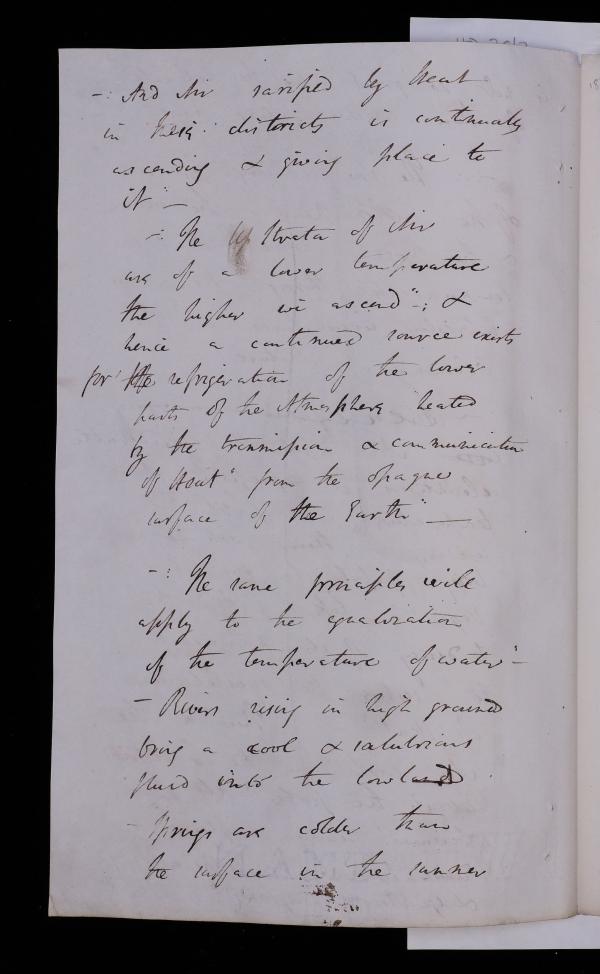 -: And Air rarified by heat
in these districts is continually
ascending & giving place to
it" —
-: The Strata of Air
are of a lower temperature
the higher we ascend"-; &
hence a continued source exists
for the refrigeration of the lower
parts of the Atmosphere heated
by the transmission & communication
of Heat" from the opaque
surface of the Earth" —
-: The same principles will
apply to the equalization
of the temperature of water"-
- Rivers rising in high ground
bring a cool & salubrious
fluid into the lowland
- Springs are colder than
the surface in the summer